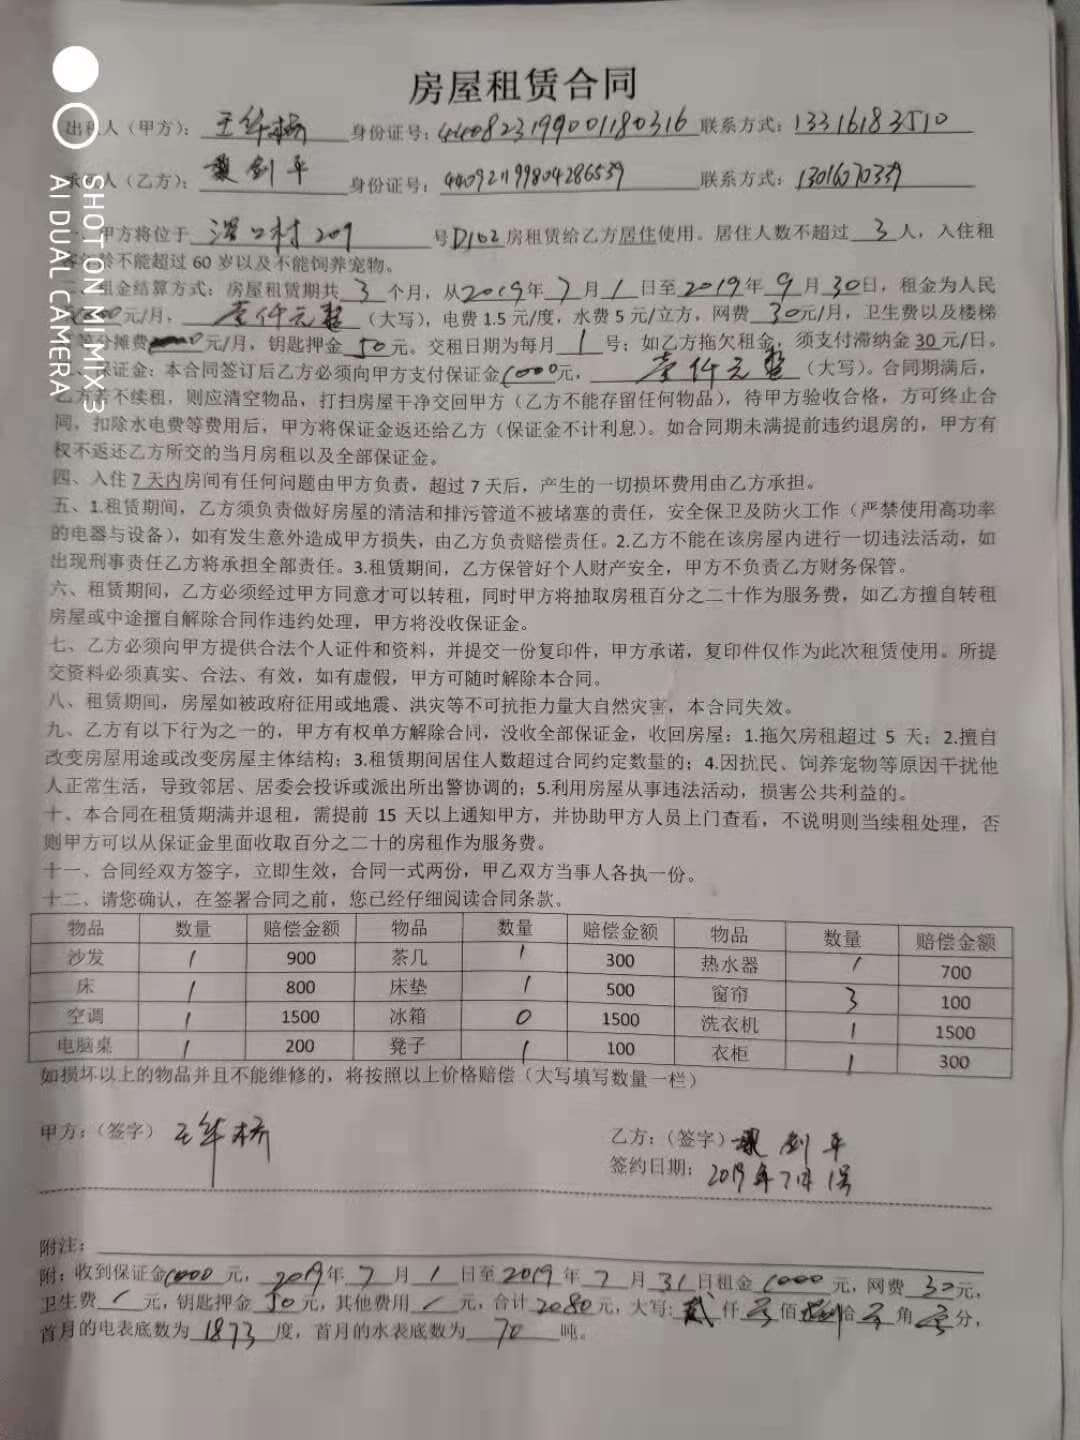 房屋租赁合同
出租人（甲方）：王华桥 身份证号：440823199001180316 联系方式：13316183510
承租人（乙方）：剑平 身份证号：440921199804286539 联系方式：13016070339
一、甲方将位于 口村 209 号D102房租赁给乙方居住使用。居住人数不超过 3 人，入住租
客年龄不能超过 60 岁以及不能饲养宠物。
二、租金结算方式：房屋租赁期共 3 个月，从2019年 7 月 1 日至 2019 年 9 月 30日，租金为人民
1000元/月，壹仟元整（大写），电费 1.5 元/度，水费 5 元/立方，网费 30元/月，卫生费以及楼梯
等分摊费 元/月，钥匙押金 50 元。交租日期为每月 1 号；如乙方拖欠租金，须支付滞纳金 30 元/日。
三、保证金：本合同签订后乙方必须向甲方支付保证金1000元，壹仟元整（大写）。合同期满后，
乙方若不续租，则应清空物品，打扫房屋干净交回甲方（乙方不能存留任何物品），待甲方验收合格，方可终止合
同，扣除水电费等费用后，甲方将保证金返还给乙方（保证金不计利息）。如合同期未满提前违约退房的，甲方有
权不返还乙方所交的当月房租以及全部保证金。
四、入住 7 天内房间有任何问题由甲方负责，超过 7 天后，产生的一切损坏费用由乙方承担。
五、1.租赁期间，乙方须负责做好房屋的清洁和排污管道不被堵塞的责任，安全保卫及防火工作（严禁使用高功率
的电器与设备），如有发生意外造成甲方损失，由乙方负责赔偿责任。2.乙方不能在该房屋内进行一切违法活动，如
出现刑事责任乙方将承担全部责任。3.租赁期间，乙方保管好个人财产安全，甲方不负责乙方财务保管。
六、租赁期间，乙方必须经过甲方同意才可以转租，同时甲方将抽取房租百分之二十作为服务费，如乙方擅自转租
房屋或中途擅自解除合同作违约处理，甲方将没收保证金。
七、乙方必须向甲方提供合法个人证件和资料，并提交一份复印件，甲方承诺，复印件仅作为此次租赁使用。所提
交资料必须真实、合法、有效，如有虚假，甲方可随时解除本合同。
八、租赁期间，房屋如被政府征用或地震、洪灾等不可抗拒力量大自然灾害，本合同失效。
九、乙方有以下行为之一的，甲方有权单方解除合同，没收全部保证金，收回房屋：1.拖欠房租超过 5 天；2.擅自
改变房屋用途或改变房屋主体结构；3.租赁期间居住人数超过合同约定数量的；4.因扰民、饲养宠物等原因干扰他
人正常生活，导致邻居、居委会投诉或派出所出警协调的；5.利用房屋从事违法活动，损害公共利益的。
十、本合同在租赁期满并退租，需提前 15 天以上通知甲方，并协助甲方人员上门查看，不说明则当续租处理，否
则甲方可以从保证金里面收取百分之二十的房租作为服务费。
十一、合同经双方签字，立即生效，合同一式两份，甲乙双方当事人各执一份。
十二、请您确认，在签署合同之前，您已经仔细阅读合同条款。
物品 数量 赔偿金额 物品 数量 赔偿金额 物品 数量 赔偿金额
沙发 1 900 茶几 1 300 热水器 1 700
床 1 800 床垫 1 500 窗帘 3 100
空调 1 1500 冰箱 0 1500 洗衣机 1 1500
电脑桌 1 200 凳子 1 100 衣柜 1 300
如损坏以上的物品并且不能维修的，将按照以上价格赔偿（大写填写数量一栏）
甲方：（签字）王华桥
乙方：（签字）剑平
签约日期：2019年7月1号
附注：
附：收到保证金1000元，2019年 7 月 1 日至2019 年 7 月 31 日租金 1000 元，网费 30元，
卫生费 / 元，钥匙押金 50元，其他费用 / 元，合计 2080元，大写：贰仟零佰捌拾零角零分，
首月的电表底数为 1873 度，首月的水表底数为 70 吨。
SHOT ON MI MIX 3
AI DUAL CAMERA